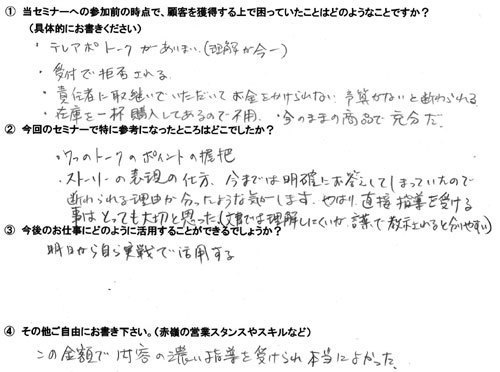 ① 当セミナーへの参加前の時点で、顧客を獲得する上で困っていたことはどのようなことですか？
(具体的にお書きください)
・テレアポトークがあいまい。(理解が今一)
・受付で拒否される。
・責任者に取継いでいただいてもお金をかけられない 予算がないと断わられる
・在庫を一杯購入してあるので不用。・今のままの商品で充分だ。
② 今回のセミナーで特に参考になったところはどこでしたか？
・7つのトークのポイントの握把
・ストーリーの表現の仕方、今までは明確にお答えしてしまっていたので
断わられる理由が分ったような気がします。やはり直接指導を受ける
事はとっても大切と思った(文書では理解しにくいが、講義で教示されると分りやすい)
③ 今後のお仕事にどのように活用することができるでしょうか？
明日から自ら実戦で活用する
④ その他ご自由にお書き下さい。(赤嶺の営業スタンスやスキルなど)
この金額で内容の濃い指導を受けられ本当によかった。